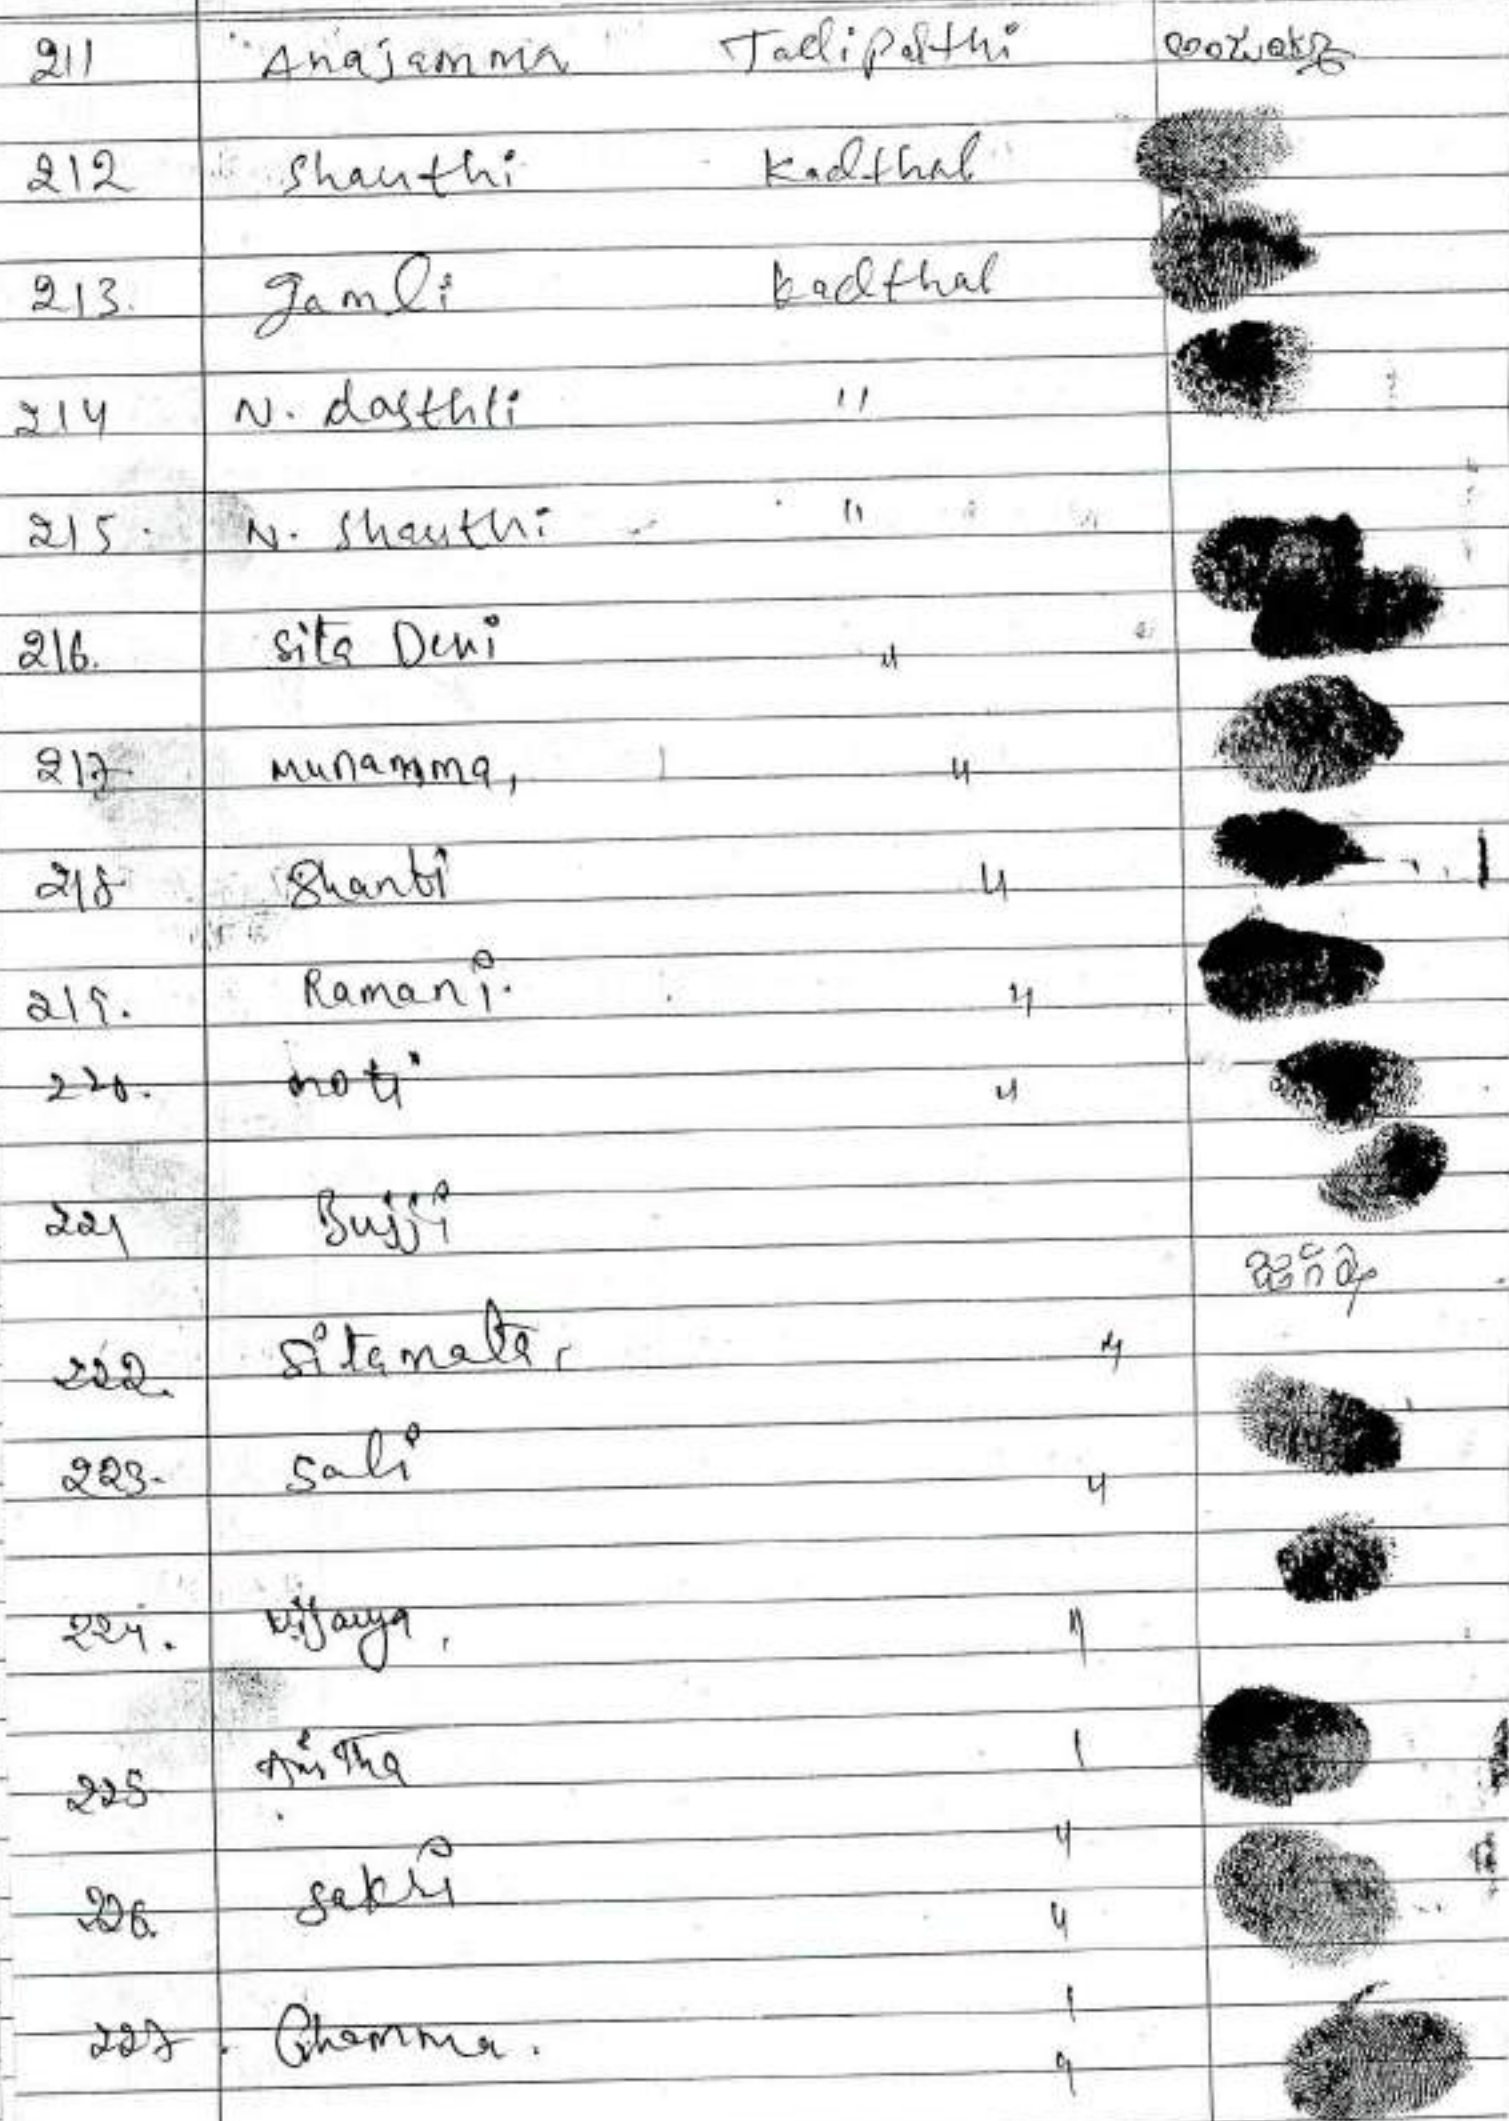 211 Anajamma Tallipalthi
212 Shanthi Kadthal
213. Jamli Kadthal
214 N. dasthli "
215 N. Shanthi "
216. Sita Devi "
217 Munamma, "
218 Shanti "
219. Ramani. "
220. moti "
221 Bujji
222. Sitamata, "
223. Sali "
224. Vijaya, "
225 Anitha "
226. Sakri "
227. Chamma. "